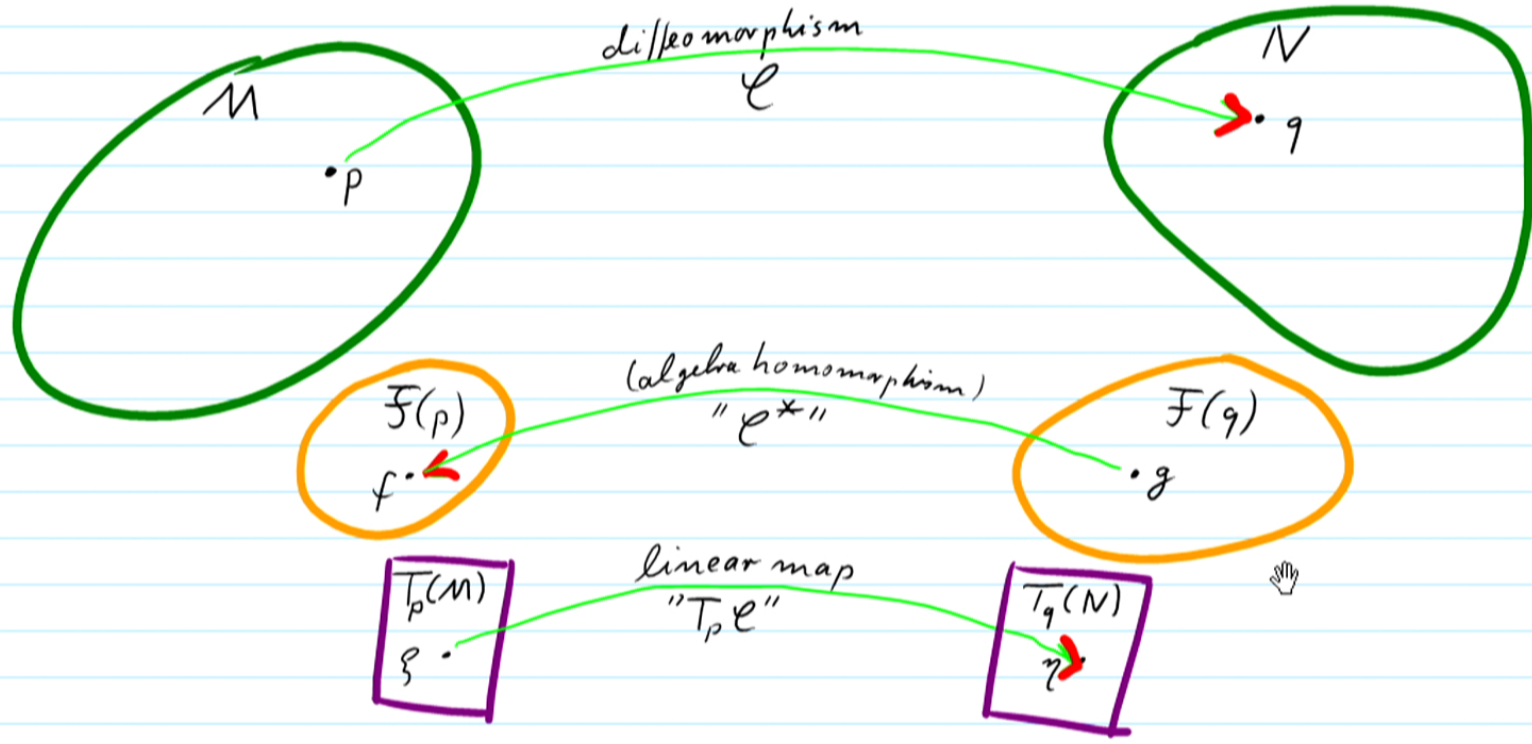 diffeomorphism
M φ N
p q
(algebra homomorphism)
F(p) "φ*" F(q)
f g
linear map
Tₚ(M) "Tₚφ" T_q(N)
ξ η